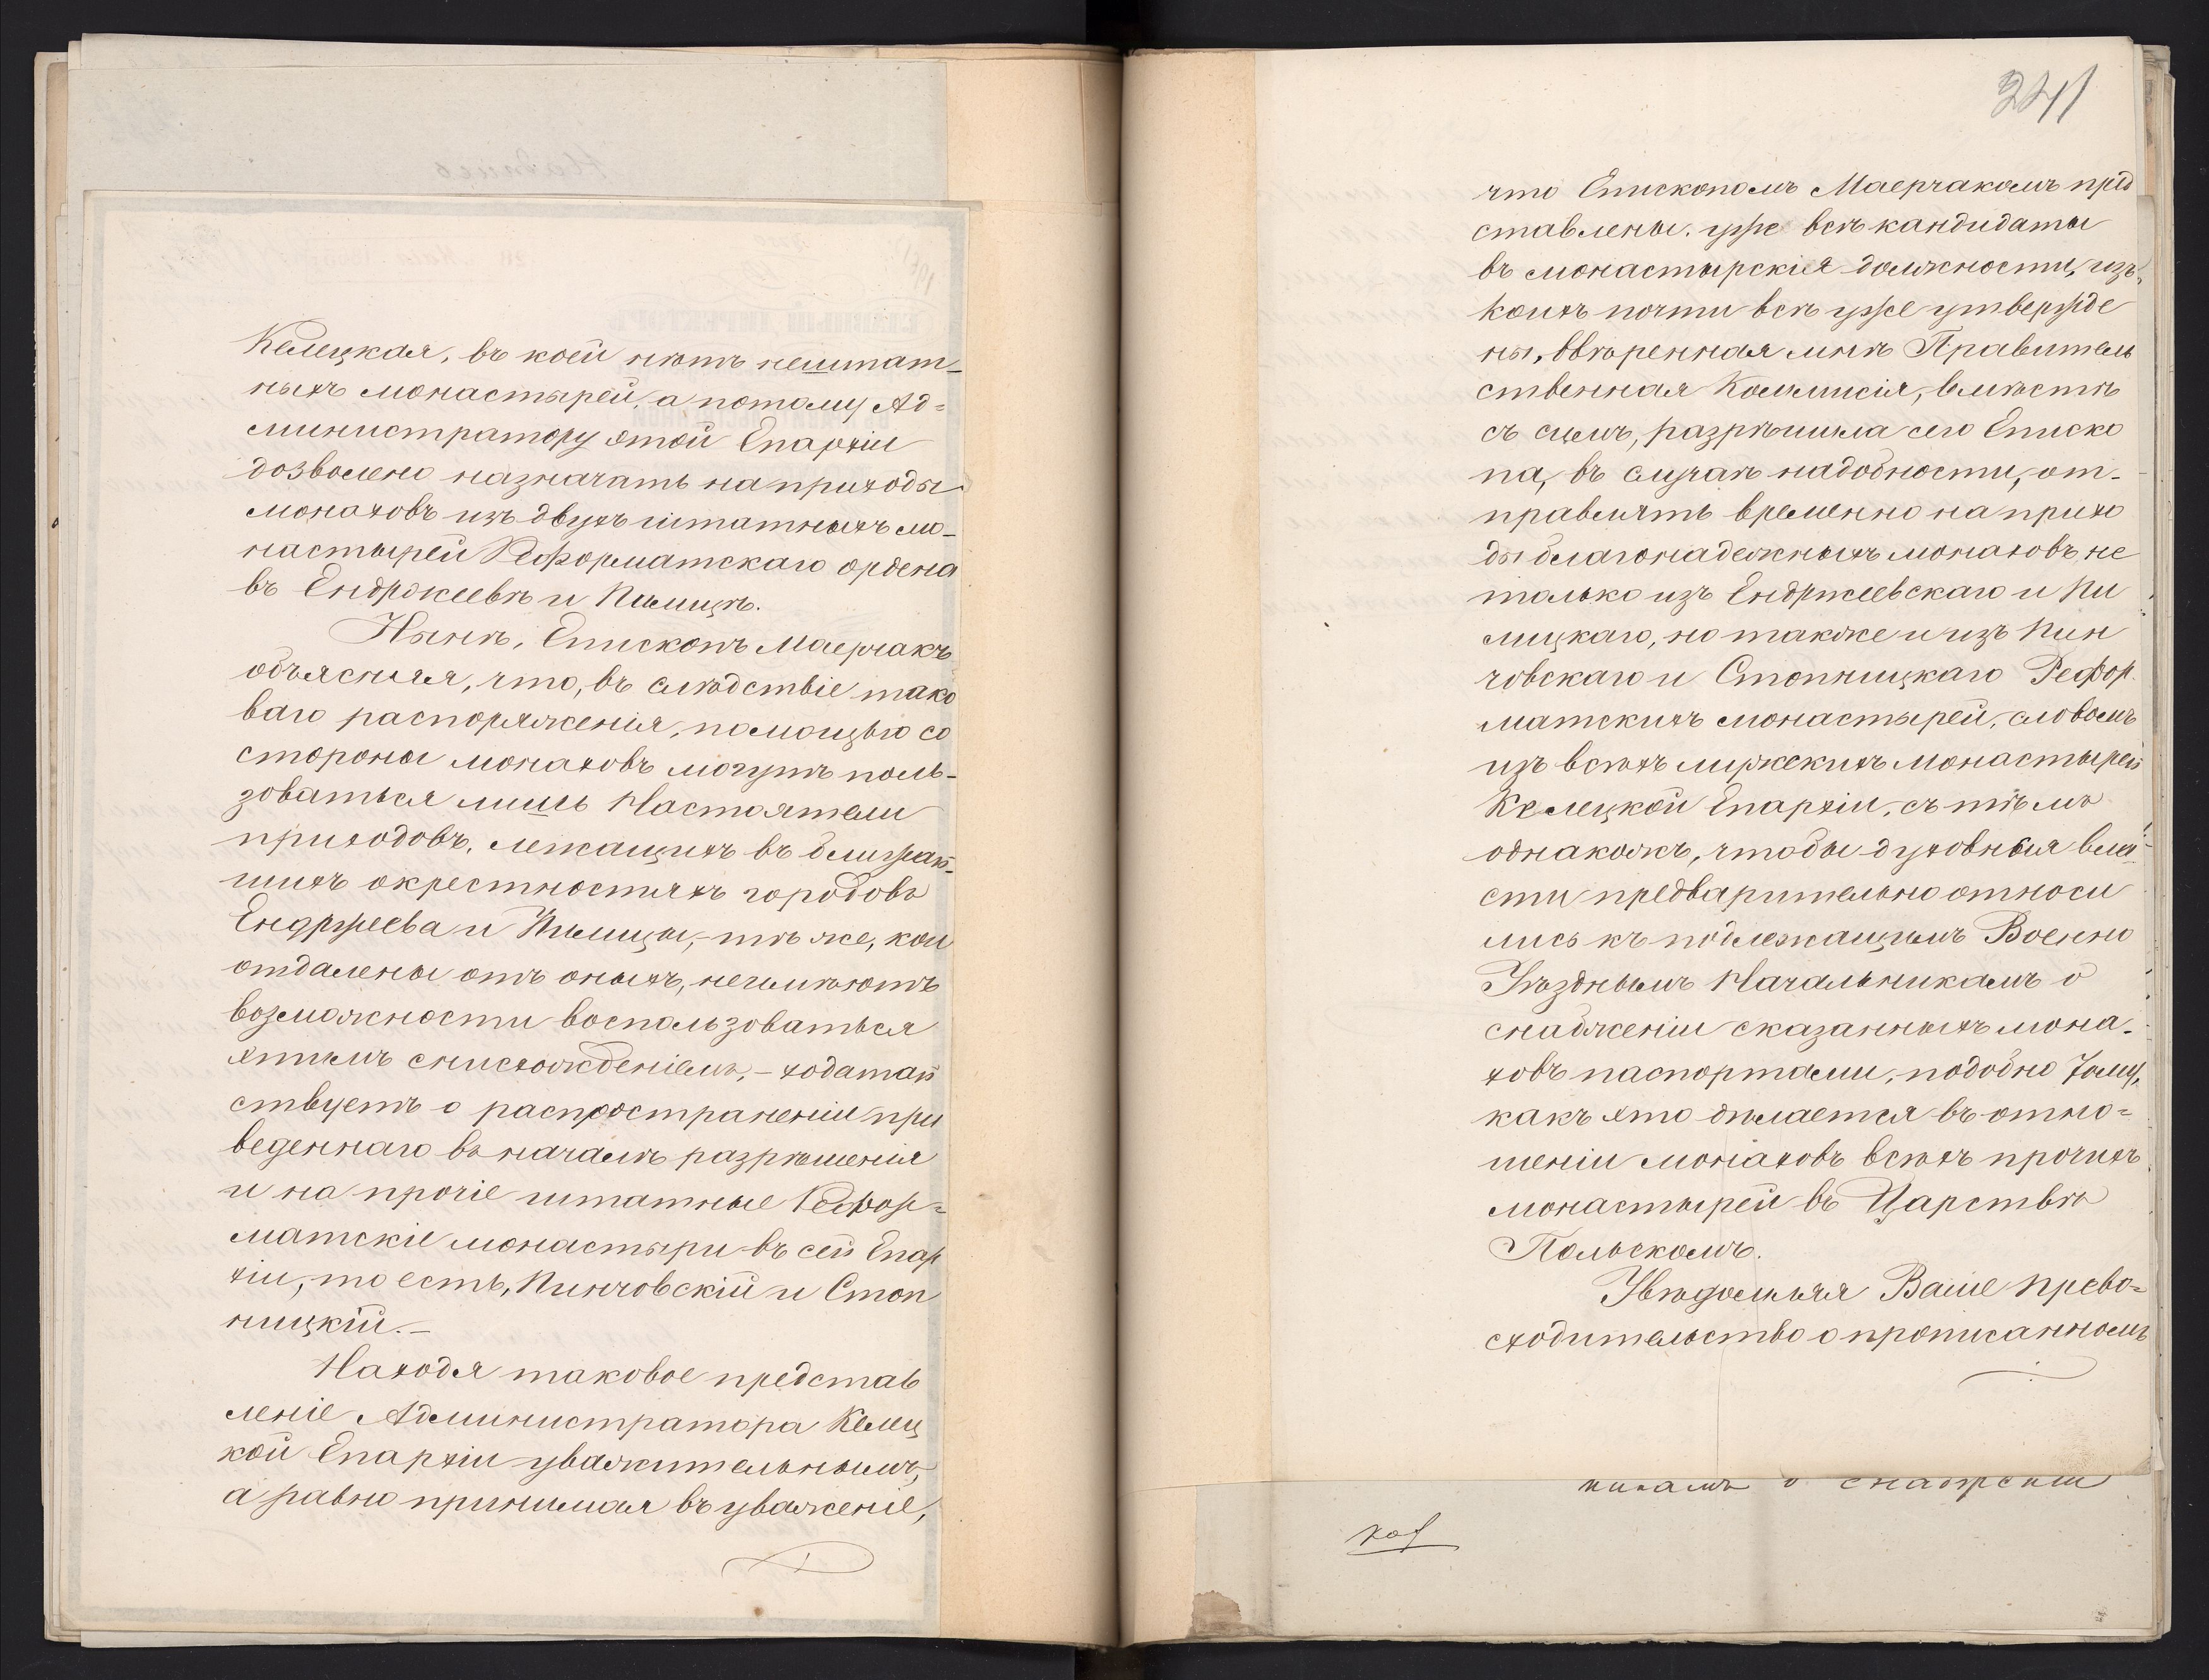 Келецкая, въ коей нѣтъ нештат-
ныхъ монастырей, а потому Ад=
министратору этой Епархіи
дозволено назначать на приходы
монаховъ изъ двухъ штатныхъ мо-
настырей Реформатскаго ордена
въ Енджеевѣ и Пилицѣ.
Нынѣ, Епископъ Маерчакъ
объясняя, что, въ слѣдствіе тако
ваго распоряженія, помощью со
стороны монаховъ могутъ поль-
зоваться лишь Настоятели
приходовъ, лежащихъ въ ближай-
шихъ окрестностяхъ городовъ
Енджеева и Пилицы, - тѣ же, кои
отдалены отъ оныхъ, неимѣютъ
возможности воспользоваться
этимъ снисхожденіемъ, - ходатай
ствуетъ о распространеніи при
веденнаго въ началѣ разрѣшенія
и на прочіе штатные Рефор=
матскіе монастыри въ сей Епар
хіи, то есть, Пинчовскій и Стоп
ницкій. -
Находя таковое представ
леніе Администратора Келец
кой Епархіи уважительнымъ,
а равно принимая въ уваженіе,
241
что Епископомъ Маерчакомъ пред
ставлены уже всѣ кандидаты
въ монастырскія должности, изъ
коихъ почти всѣ уже утвержде
ны, ввѣренная мнѣ Правитель
ственная Коммисія, вмѣстѣ
съ симъ, разрѣшила сего Еписко
па, въ случаѣ надобности, от-
правлять временно на прихо
ды благонадежныхъ монаховъ не
только изъ Енджеевскаго и Пи
лицкаго, но также и изъ Пин
човскаго и Стопницкаго Рефор
матскихъ монастырей, словомъ
изъ всѣхъ мужскихъ монастырей
Келецкой Епархіи, съ тѣмъ
однакожъ, чтобы духовныя вла
сти предварительно относи
лись къ подлежащимъ Военно
Уѣзднымъ Начальникамъ о
снабженіи сказанныхъ мона-
ховъ паспортами, подобно тому,
какъ это дѣлается въ отно=
шеніи монаховъ всѣхъ прочихъ
монастырей въ Царствѣ
Польскомъ.
Увѣдомляя Ваше Прево=
сходительство о прописанномъ
никамъ о снабженіи